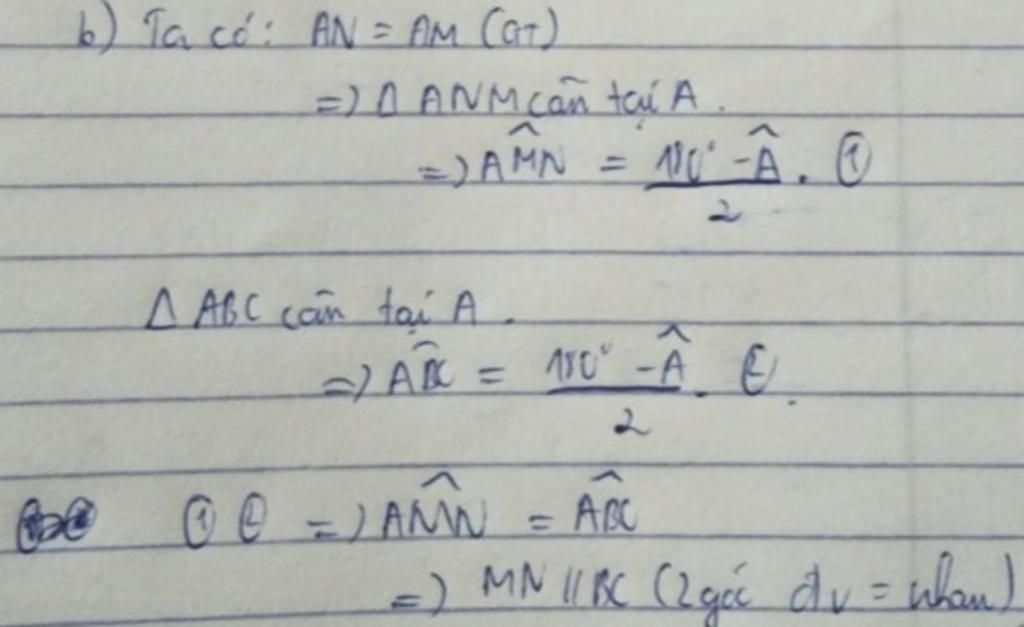 b) Ta có: AN = AM (GT)
=) Δ ANM cân tại A.
=) AM̂N = (180° - Â)/2. ①
Δ ABC cân tại A.
=) AB̂C = (180° - Â)/2. ②.
① ② =) AM̂N = AB̂C
=) MN // BC (2 góc đv = nhau)